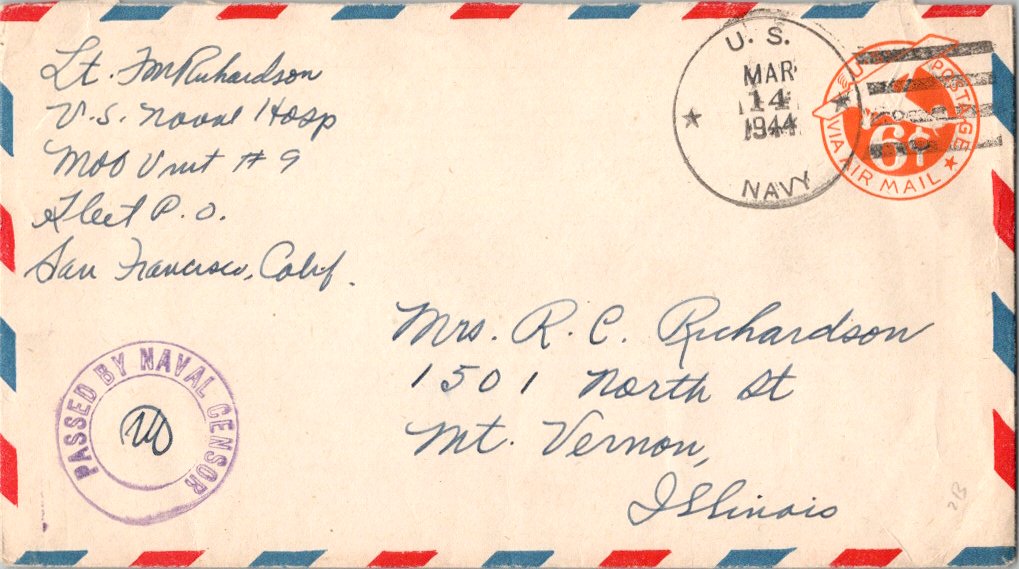 Lt. FM Richardson
U.S. Naval Hosp
MOB Unit # 9
Fleet P.O.
San Francisco, Calif.
U. S.
MAR
14
1944
NAVY
U.S. POSTAGE
6¢
VIA AIR MAIL
Mrs. R. C. Richardson
1501 North St
Mt. Vernon,
Illinois
PASSED BY NAVAL CENSOR
2B